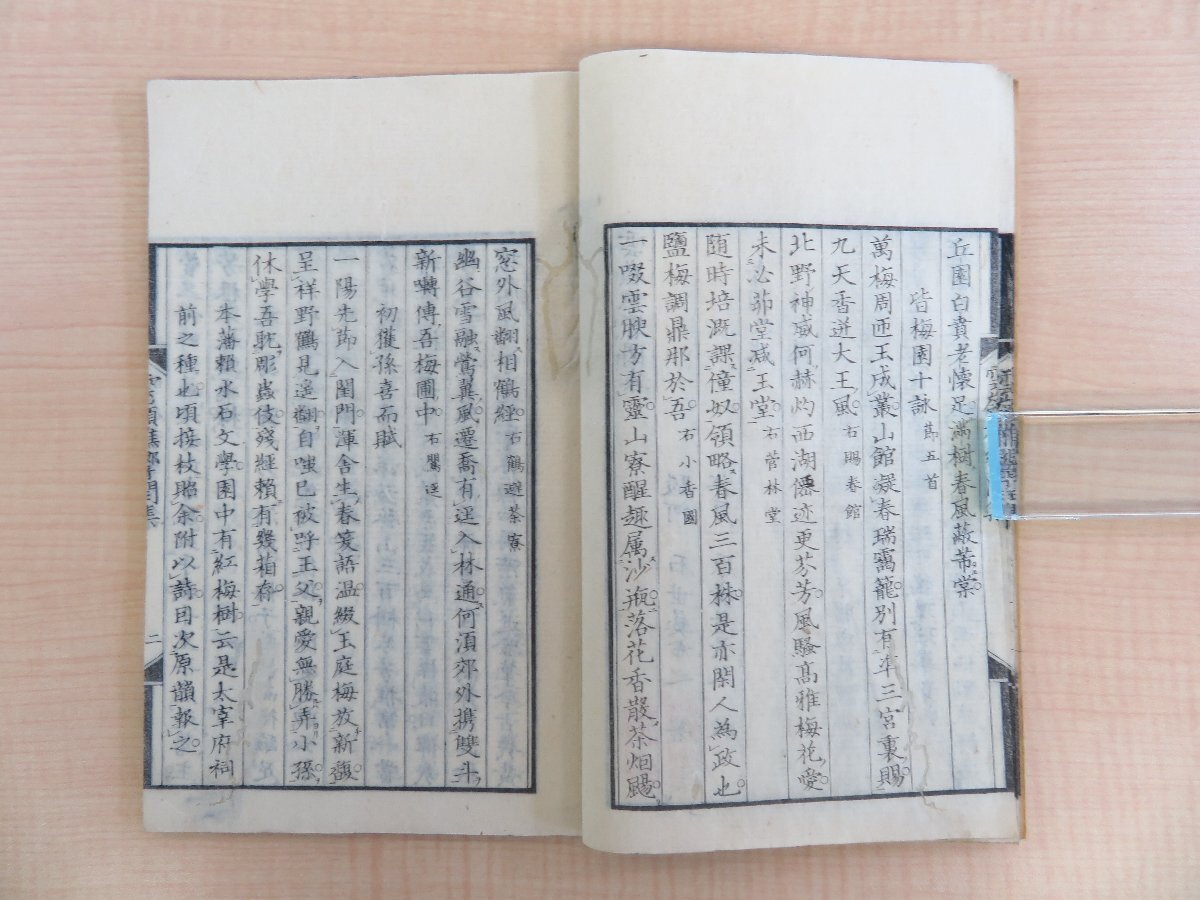 丘園白賁老懷足滿樹春風蔽芾棠
皆梅園十詠 節五首
萬梅周匝玉成叢山館凝春瑞靄籠別有年三宮裏賜
九天香迸大王風 右賜春館
北野神威何赫灼西湖僊迹更芬芳風騷高雅梅花愛
未必茆堂减玉堂 右菅林堂
随時培溉課僮奴領略春風三百株是亦閑人為政也
鹽梅調鼎那於吾 右小香國
一啜雲腴方有靈山寮醒趣属沙瓶落花香散茶烟颺
窓外風翻相鶴經 右鶴避茶寮
幽谷雪融鶯翼風遷喬有逕入林通何須郊外携雙斗
新囀傳吾梅圃中 右鸎逕
初獲孫喜而賦
一陽先節入閨門渾舍生春笑語温綴玉庭梅放新馥
呈祥野鶴見遥翻自嗤已被呼王父親愛無勝弄小孫
休學吾耽彫蟲伎殘經賴有幾箱存
本藩賴水石文學園中有紅梅樹云是太宰府祠
前之種也頃接枝貽余附以詩因次原韻報之
二